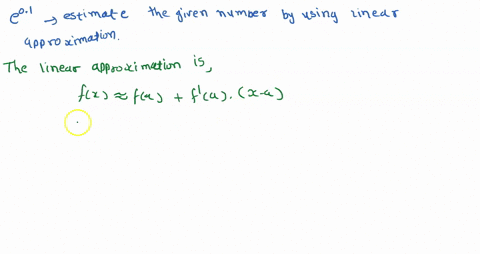 e^0.1 → estimate the given number by using linear
approximation.
The linear approximation is,
f(x) ≈ f(a) + f'(a). (x-a)